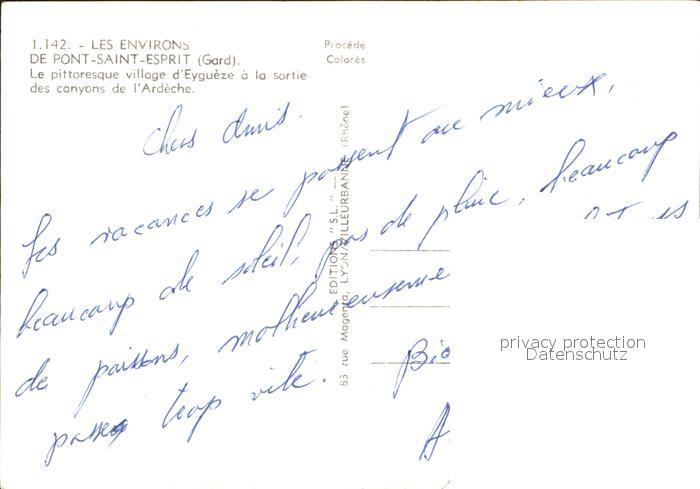 1.142. - LES ENVIRONS
DE PONT-SAINT-ESPRIT (Gard).
Le pittoresque village d'Eyguèze à la sortie
des canyons de l'Ardèche.
Procédé
Colorés
EDITIONS "S.L." —
83 rue Magenta, LYON/VILLEURBANNE (Rhône)
Chers Amis.
Les vacances se passent au mieux,
beaucoup de soleil, pas de pluie, beaucoup
de poissons, malheureuseme
passe trop vite.
Bie
A
privacy protection
Datenschutz